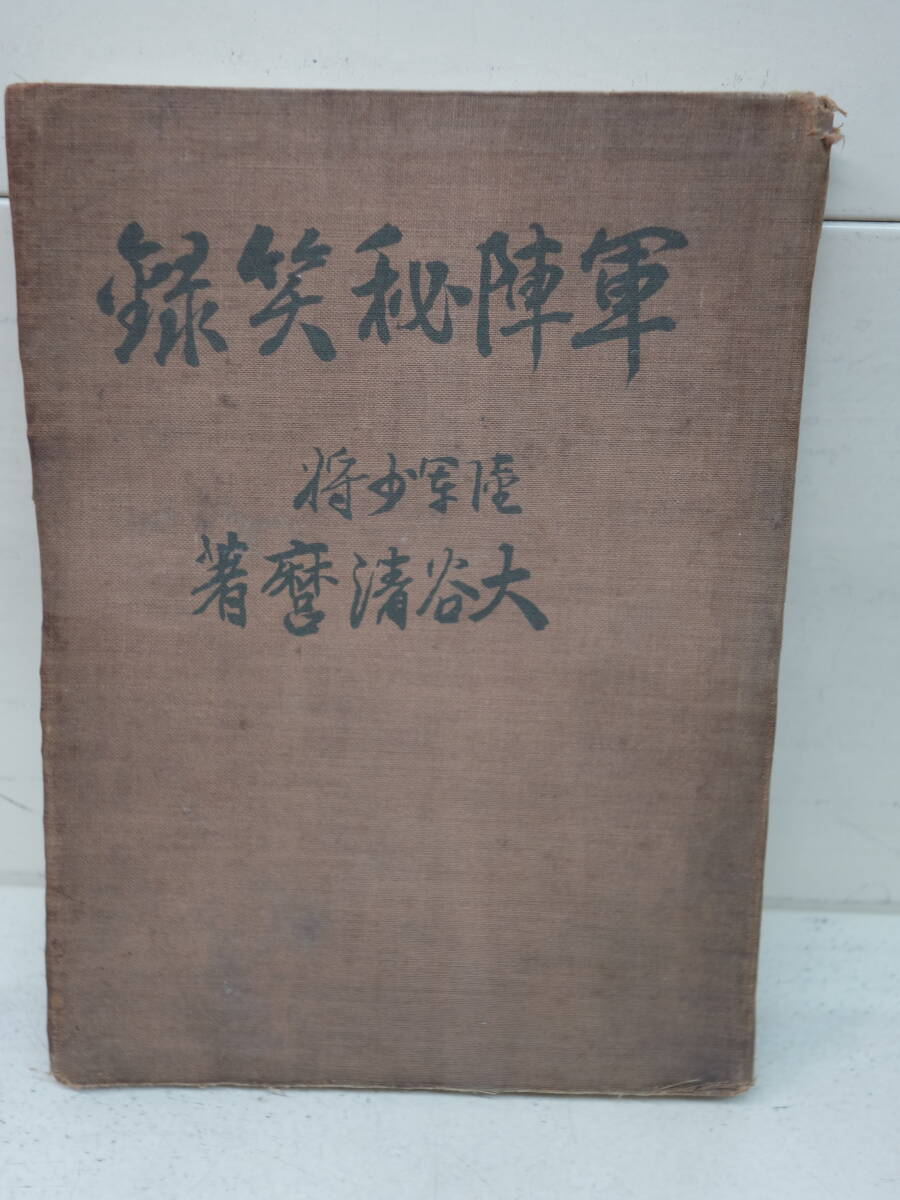 軍陣秘笑録
陸軍少将
大谷清麿著